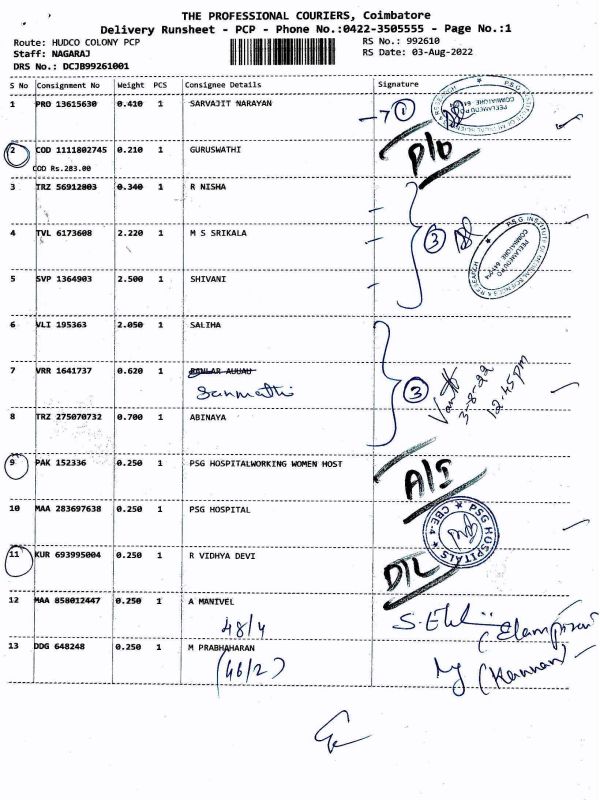 THE PROFESSIONAL COURIERS, Coimbatore
Delivery Runsheet - PCP - Phone No.:0422-3505555 - Page No.:1
Route: HUDCO COLONY PCP RS No.: 992610
Staff: NAGARAJ RS Date: 03-Aug-2022
DRS No.: DCJB99261001
S No Consignment No Weight PCS Consignee Details Signature
1 PRO 13615630 0.410 1 SARVAJIT NARAYAN 1
P.S.G. INSTITUTE OF MEDICAL SCIENCES & RESEARCH
PEELAMEDU PO
COIMBATORE
2 COD 1111802745 0.210 1 GURUSWATHI
COD Rs.283.00
3 TRZ 56912803 0.340 1 R NISHA
4 TVL 6173608 2.220 1 M S SRIKALA 3
P.S.G. INSTITUTE OF MEDICAL SCIENCES & RESEARCH
PEELAMEDU PO
COIMBATORE
5 SVP 1364903 2.500 1 SHIVANI
6 VLI 195363 2.050 1 SALIHA
7 VRR 1641737 0.620 1
Sanmathi 3
3-8-22
12.45 pm
8 TRZ 275070732 0.700 1 ABINAYA
9 PAK 152336 0.250 1 PSG HOSPITALWORKING WOMEN HOST
10 MAA 283697638 0.250 1 PSG HOSPITAL
PSG HOSPITALS
CBE-4
11 KUR 693995004 0.250 1 R VIDHYA DEVI
D/L
12 MAA 858012447 0.250 1 A MANIVEL
48/4
13 DDG 648248 0.250 1 M PRABHAHARAN
(46/2) (Kannan)